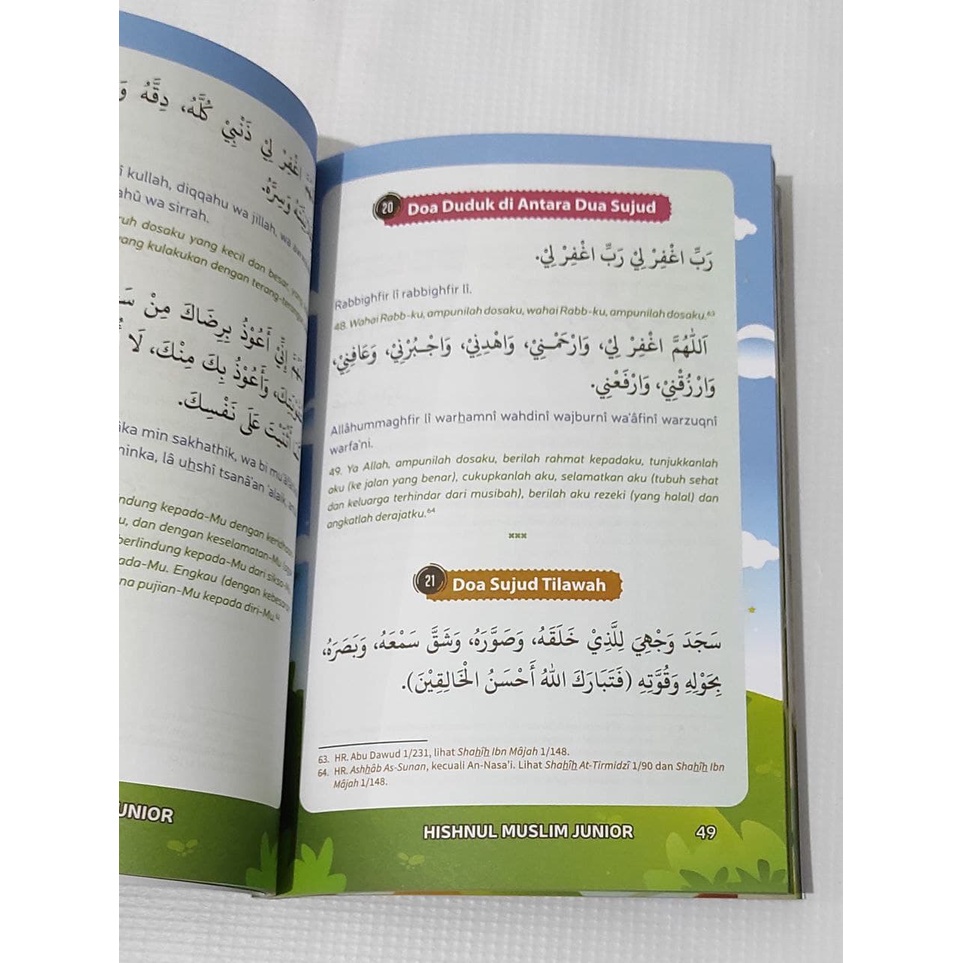 اغْفِرْ لِيْ ذَنْبِيْ كُلَّهُ، دِقَّهُ وَ
وَسِرَّهُ.
î kullah, diqqahu wa jillah, wa
ahû wa sirrah.
uh dosaku yang kecil dan besar, yang
yang kulakukan dengan terang-terangan
إِنِّيْ أَعُوْذُ بِرِضَاكَ مِنْ سَ
وَأَعُوْذُ بِكَ مِنْكَ، لَا أُ
أَثْنَيْتَ عَلَى نَفْسِكَ.
ika min sakhathik, wa bi mu'â
minka, lâ uhshî tsanâ'an 'alaik,
indung kepada-Mu dengan
u, dan dengan keselamatan-Mu
berlindung kepada-Mu dari
ada-Mu. Engkau (dengan
na pujian-Mu kepada diri-Mu.
UNIOR
20 Doa Duduk di Antara Dua Sujud
رَبِّ اغْفِرْ لِيْ رَبِّ اغْفِرْ لِيْ.
Rabbighfir lî rabbighfir lî.
48. Wahai Rabb-ku, ampunilah dosaku, wahai Rabb-ku, ampunilah dosaku.⁶³
اَللّٰهُمَّ اغْفِرْ لِيْ، وَارْحَمْنِيْ، وَاهْدِنِيْ، وَاجْبُرْنِيْ، وَعَافِنِيْ،
وَارْزُقْنِيْ، وَارْفَعْنِيْ.
Allâhummaghfir lî warhamnî wahdinî wajburnî wa'âfinî warzuqnî
warfa'ni.
49. Ya Allah, ampunilah dosaku, berilah rahmat kepadaku, tunjukkanlah
aku (ke jalan yang benar), cukupkanlah aku, selamatkan aku (tubuh sehat
dan keluarga terhindar dari musibah), berilah aku rezeki (yang halal) dan
angkatlah derajatku.⁶⁴
***
21 Doa Sujud Tilawah
سَجَدَ وَجْهِيَ لِلَّذِيْ خَلَقَهُ، وَصَوَّرَهُ، وَشَقَّ سَمْعَهُ، وَبَصَرَهُ،
بِحَوْلِهِ وَقُوَّتِهِ (فَتَبَارَكَ اللهُ أَحْسَنُ الْخَالِقِيْنَ).
63. HR. Abu Dawud 1/231, lihat Shahîh Ibn Mâjah 1/148.
64. HR. Ashhâb As-Sunan, kecuali An-Nasa'i. Lihat Shahîh At-Tirmidzî 1/90 dan Shahîh Ibn
Mâjah 1/148.
HISHNUL MUSLIM JUNIOR 49